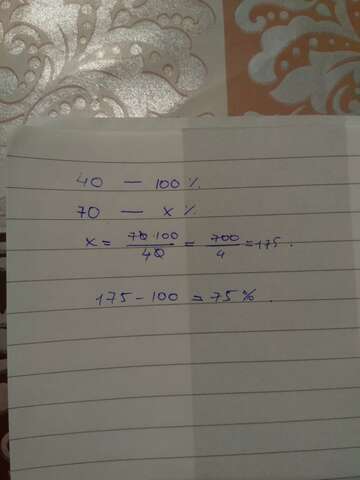 40 — 100 %
70 — x %
x = 70·100/40 = 700/4 = 175.
175 - 100 = 75 %.